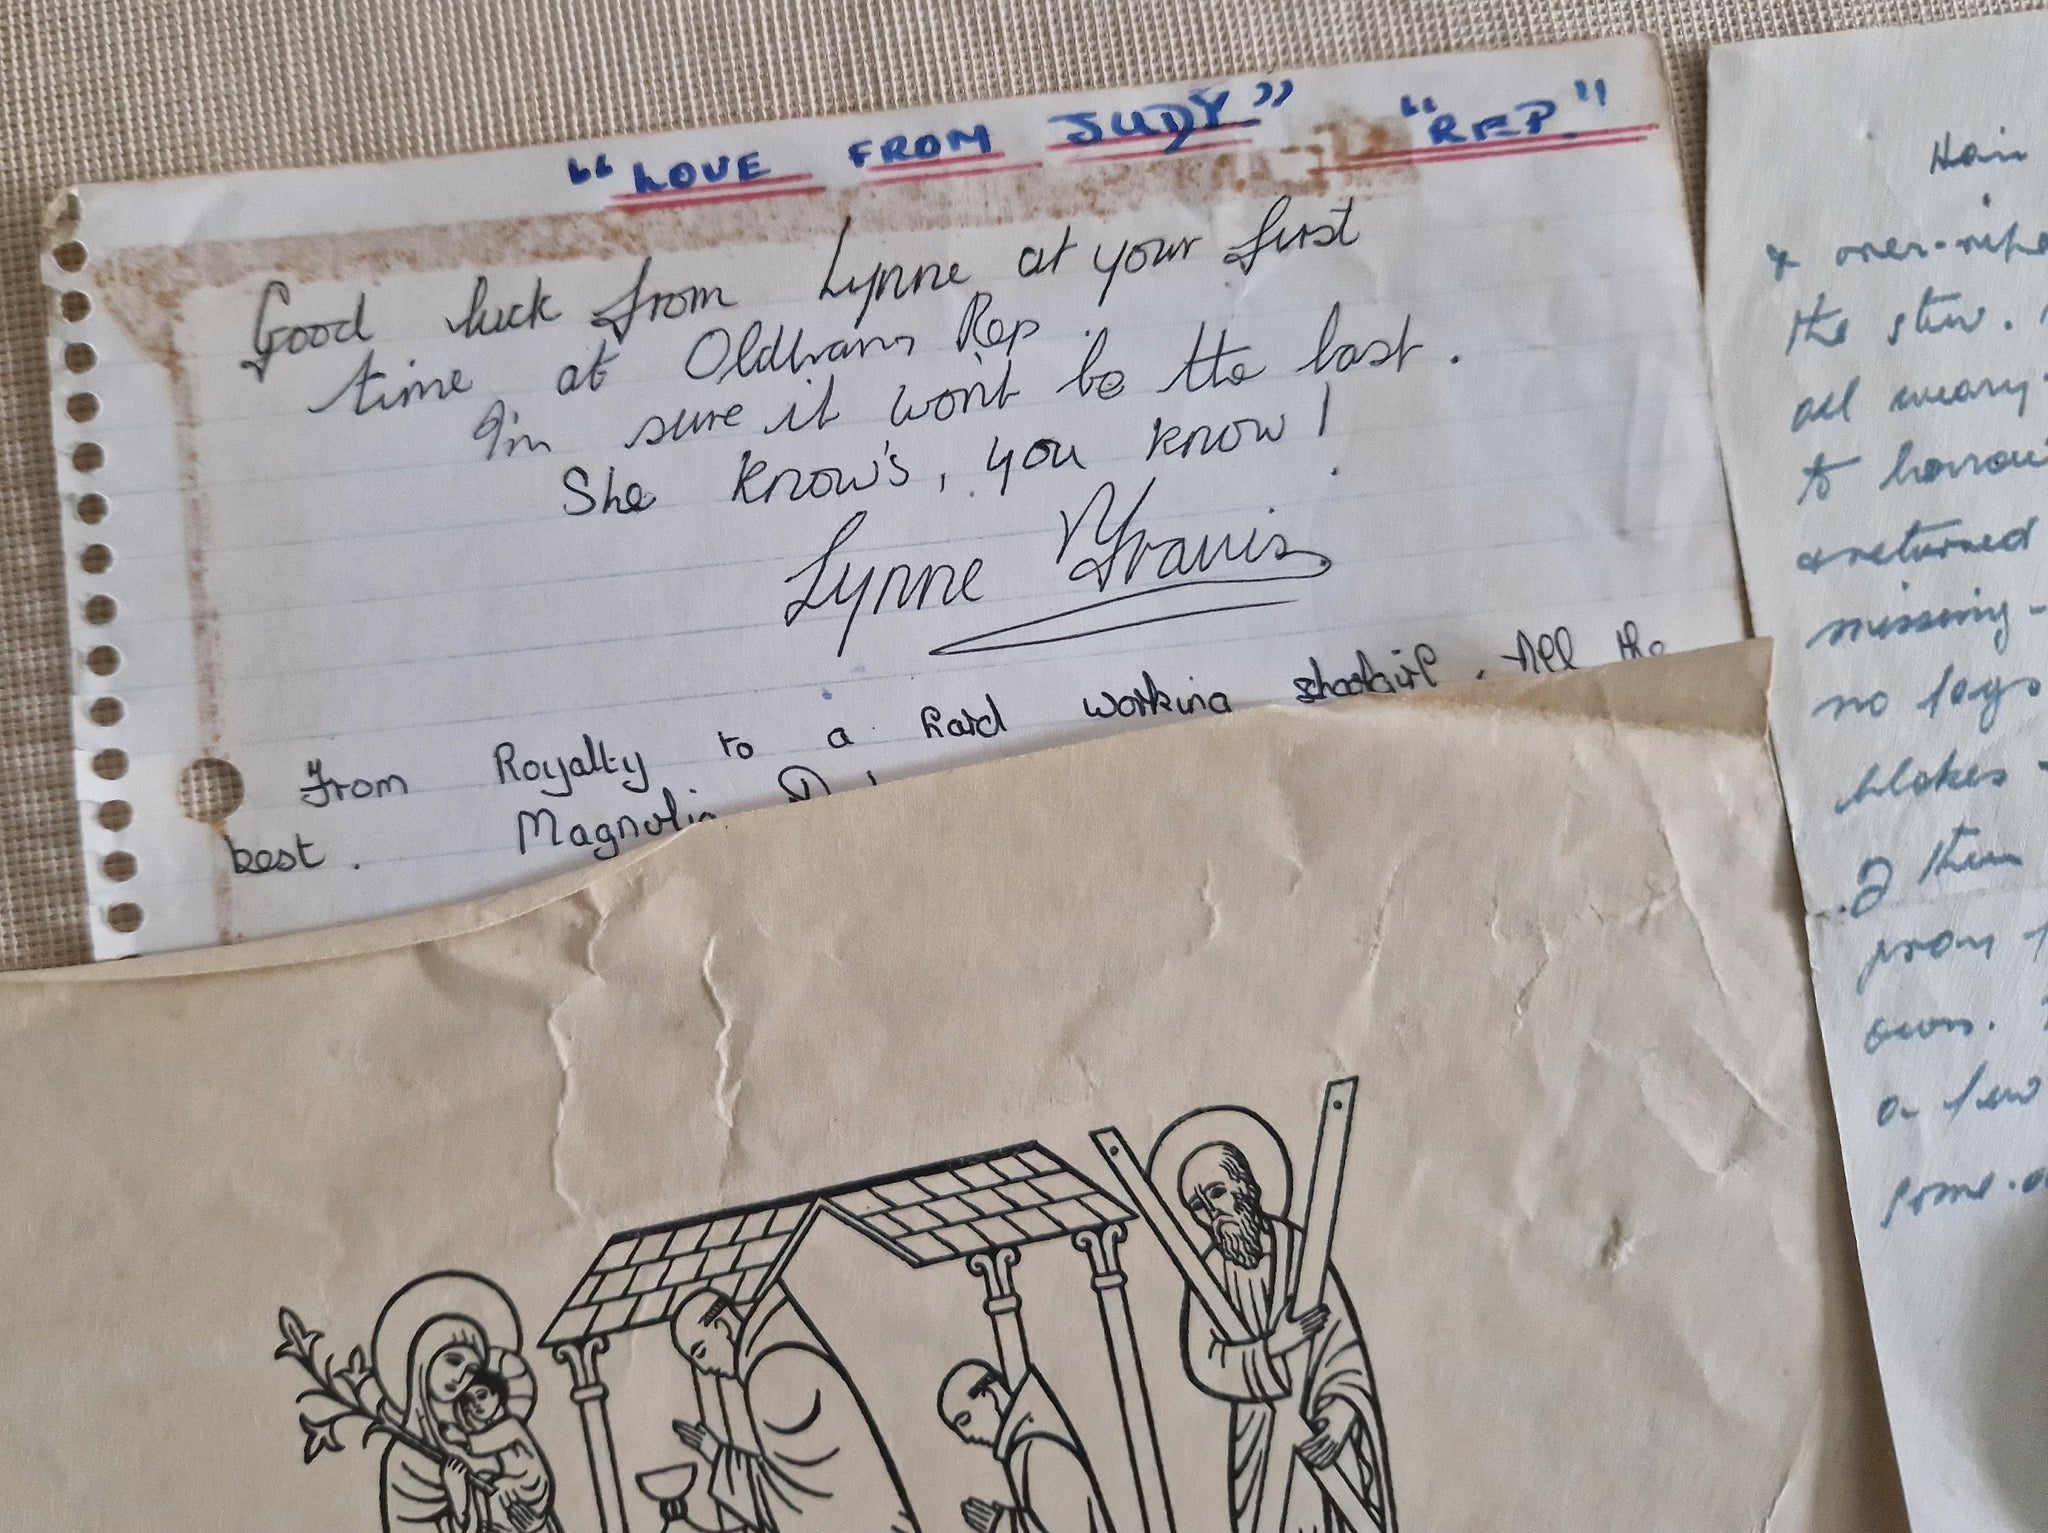 "LOVE FROM JUDY" "REP."
Good luck from Lynne at your first
time at Oldham Rep.
I'm sure it won't be the last.
She know's, you know!
Lynne Travis
From Royalty to a hard working schoolgirl. All the
best. Magnolia
Hair
& over-ripe
the stew.
all weary
to
& returned
missing -
no
blokes -
I then
from
own.
a few
some